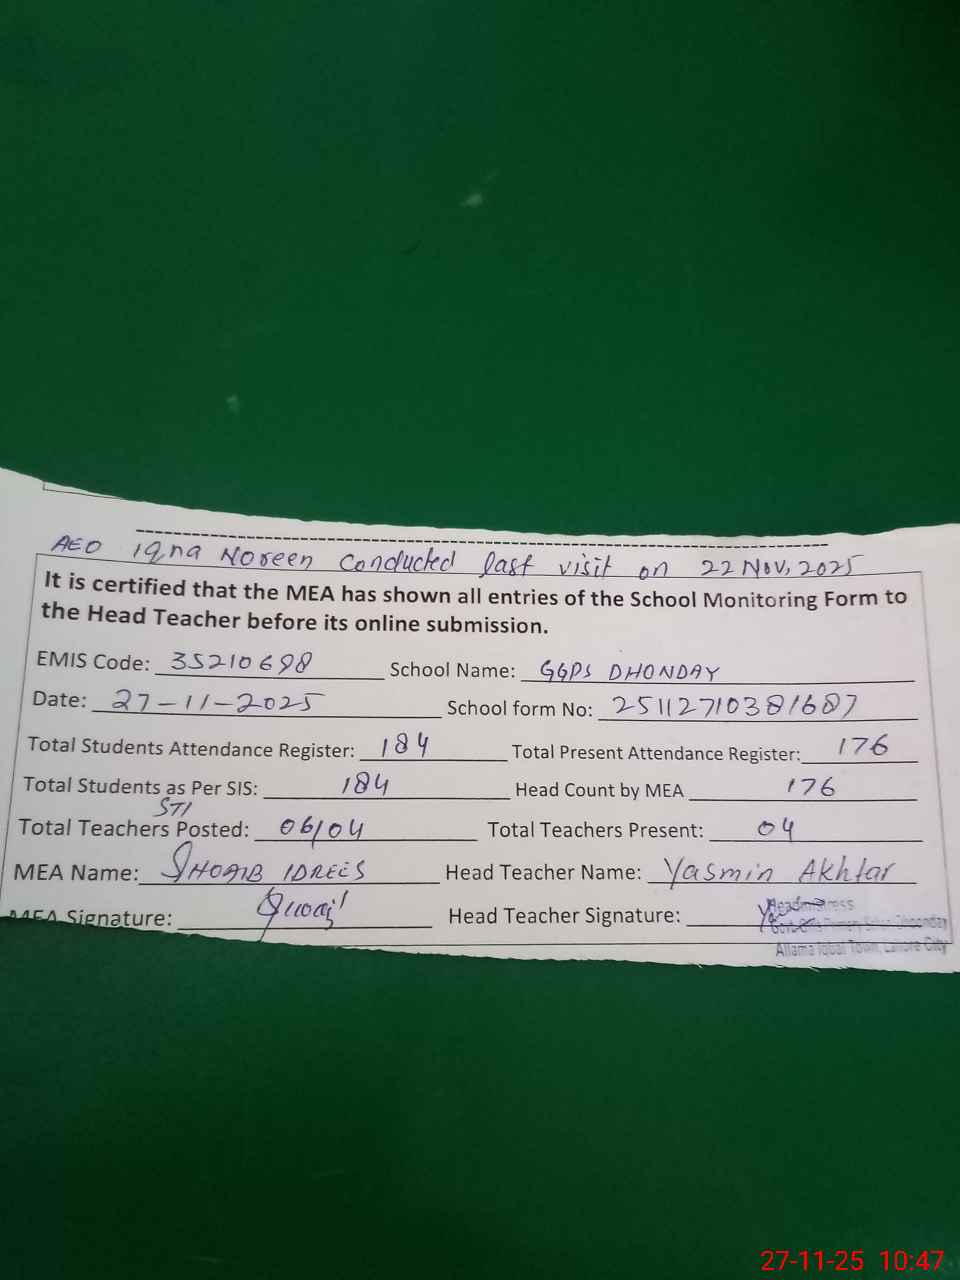 AEO iqna Noreen Conducted last visit on 22 Nov, 2025
It is certified that the MEA has shown all entries of the School Monitoring Form to
the Head Teacher before its online submission.
EMIS Code: 35210698 School Name: GGPS DHONDAY
Date: 27-11-2025 School form No: 25112710381687
Total Students Attendance Register: 184 Total Present Attendance Register: 176
Total Students as Per SIS: 184 Head Count by MEA 176
STI
Total Teachers Posted: 06/04 Total Teachers Present: 04
MEA Name: SHOAIB IDREES Head Teacher Name: Yasmin Akhtar
MEA Signature: Head Teacher Signature:
Headmistress
Govt. Girls Primary School Dhonday
Allama Iqbal Town, Lahore City
27-11-25 10:47